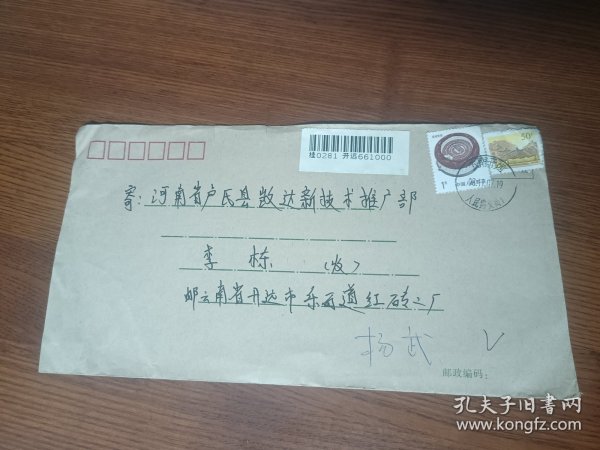 桂0281 开远661000
50分
寄:河南省卢氏县致达新技术推广部
李栋 (收)
邮云南省开远市东西道红砖二厂
杨武
邮政编码:
孔夫子旧书网
www.kongfz.com